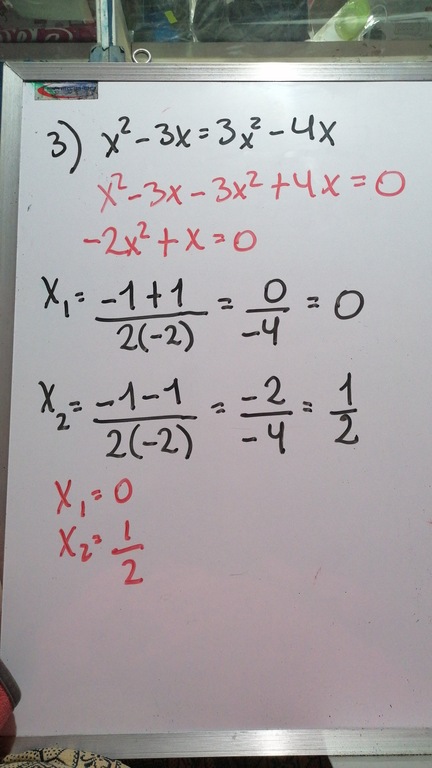 3) x² - 3x = 3x² - 4x
x² - 3x - 3x² + 4x = 0
-2x² + x = 0
x₁ = (-1 + 1)/(2(-2)) = 0/-4 = 0
x₂ = (-1 - 1)/(2(-2)) = -2/-4 = 1/2
x₁ = 0
x₂ = 1/2